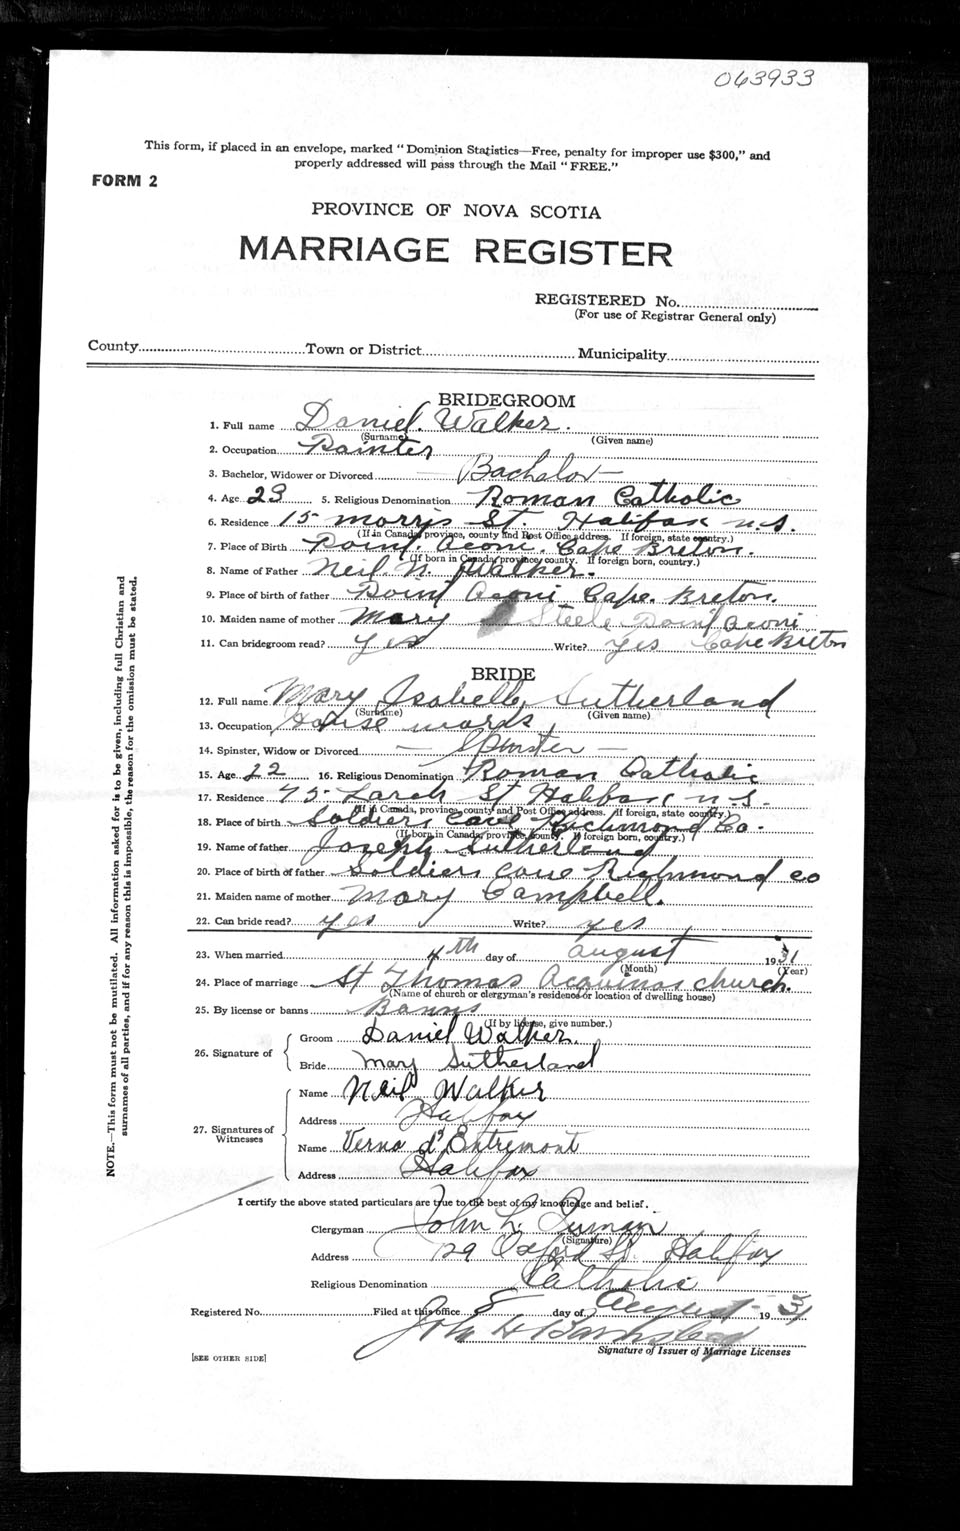 063933
This form, if placed in an envelope, marked "Dominion Statistics—Free, penalty for improper use $300," and
properly addressed will pass through the Mail "FREE."
FORM 2
PROVINCE OF NOVA SCOTIA
MARRIAGE REGISTER
REGISTERED No.
(For use of Registrar General only)
County Town or District Municipality
BRIDEGROOM
1. Full name Daniel Walker.
(Surname) (Given name)
2. Occupation Painter
3. Bachelor, Widower or Divorced — Bachelor —
4. Age 23 5. Religious Denomination Roman Catholic
6. Residence 15 Morris St. Halifax N.S.
(If in Canada, province, county and Post Office address. If foreign, state country.)
7. Place of Birth Point Aconi. Cape Breton.
(If born in Canada, province, county. If foreign born, country.)
8. Name of Father Neil N. Walker.
9. Place of birth of father Point Aconi Cape. Breton.
10. Maiden name of mother Mary Steele Point Aconi
11. Can bridegroom read? Yes Write? Yes Cape Breton
BRIDE
12. Full name Mary Isabelle Sutherland
(Surname) (Given name)
13. Occupation House
14. Spinster, Widow or Divorced — Spinster —
15. Age 22 16. Religious Denomination Roman Catholic
17. Residence 75 Larch St Halifax N.S.
(If in Canada, province, county and Post Office address. If foreign, state country.)
18. Place of birth Soldiers Cove Richmond Co.
(If born in Canada, province, county. If foreign born, country.)
19. Name of father Joseph Sutherland
20. Place of birth of father Soldiers Cove Richmond Co
21. Maiden name of mother Mary Campbell.
22. Can bride read? yes Write? yes
23. When married 4th day of August 1931
(Month) (Year)
24. Place of marriage St Thomas Acquinas church.
(Name of church or clergyman's residence or location of dwelling house)
25. By license or banns Banns
(If by license, give number.)
26. Signature of
Groom Daniel Walker.
Bride Mary Sutherland
27. Signatures of Witnesses
Name Neil Walker
Address Halifax
Name Verna d'Entremont
Address Halifax
I certify the above stated particulars are true to the best of my knowledge and belief.
Clergyman John L.
(Signature)
Address 129 Oxford St. Halifax
Religious Denomination Catholic
Registered No. Filed at this office 5 day of August 1931
John H
Signature of Issuer of Marriage Licenses
[SEE OTHER SIDE]
NOTE.—This form must not be mutilated. All information asked for is to be given, including full Christian and
surnames of all parties, and if for any reason this is impossible, the reason for the omission must be stated.